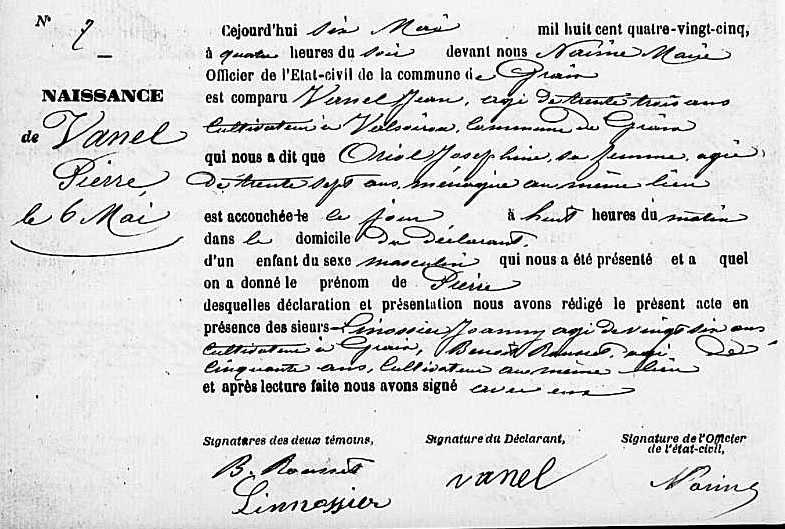 N°
7
NAISSANCE
de Vanel
Pierre,
le 6 Mai
Cejourd'hui six Mai mil huit cent quatre-vingt-cinq,
à quatre heures du soir devant nous Maire
Officier de l'Etat-civil de la commune de
est comparu Vanel Jean, agé de trente trois ans
Cultivateur à commune de
qui nous a dit que Oriol Joséphine, sa femme, agée
de trente sept ans, ménagère au même lieu
est accouchée le ce jour à huit heures du matin
dans le domicile du déclarant.
d'un enfant du sexe masculin qui nous a été présenté et a quel
on a donné le prénom de Pierre
desquelles déclaration et présentation nous avons rédigé le présent acte en
présence des sieurs Linossier Joanny agé de vingt six ans
cultivateur à Benoit Rousset, agé de
cinquante ans, Cultivateur au même lieu
et après lecture faite nous avons signé avec eux
Signatures des deux témoins,
Signature du Déclarant,
Signature de l'Officier
de l'état-civil,
B. Rousset
Linnossier
Vanel